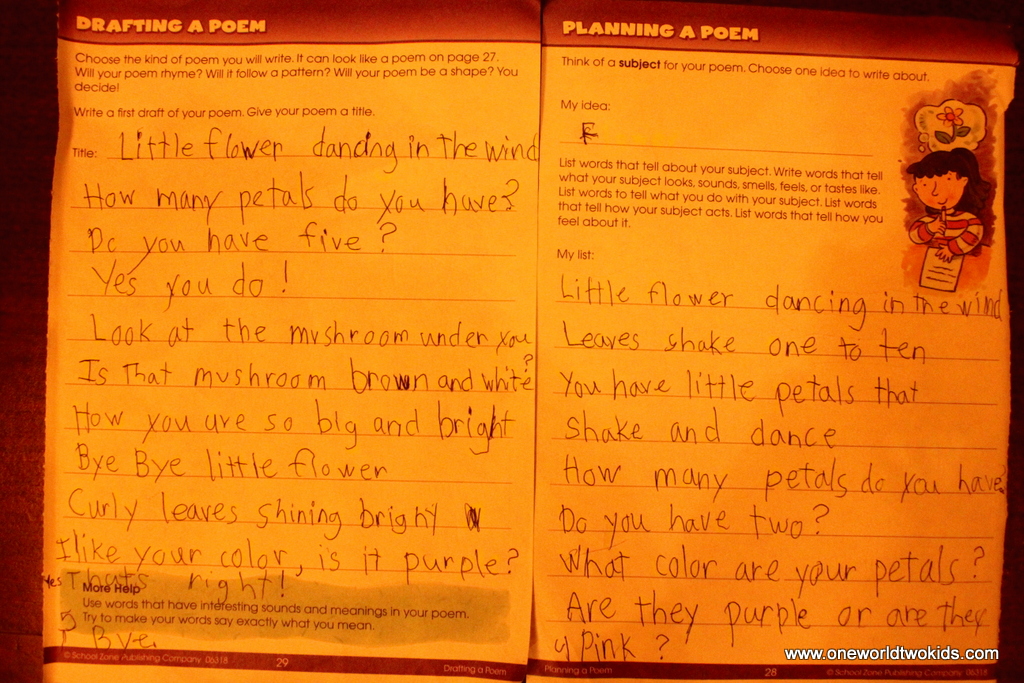 DRAFTING A POEM
Choose the kind of poem you will write. It can look like a poem on page 27.
Will your poem rhyme? Will it follow a pattern? Will your poem be a shape? You
decide!
Write a first draft of your poem. Give your poem a title.
Title: Little flower dancing in the wind
How many petals do you have?
Do you have five?
Yes you do!
Look at the mushroom under you
Is That mushroom brown and white?
How you are so big and bright
Bye Bye little flower
Curly leaves shining brighy
I like your color, is it purple?
Yes Thats right!
More Help
Use words that have interesting sounds and meanings in your poem.
Try to make your words say exactly what you mean.
Bye
© School Zone Publishing Company 06318
29
Drafting a Poem
PLANNING A POEM
Think of a subject for your poem. Choose one idea to write about.
My idea:
F
List words that tell about your subject. Write words that tell
what your subject looks, sounds, smells, feels, or tastes like.
List words to tell what you do with your subject. List words
that tell how your subject acts. List words that tell how you
feel about it.
My list:
Little flower dancing in the wind
Leaves shake one to ten
You have little petals that
shake and dance
How many petals do you have?
Do you have two?
What color are your petals?
Are they purple or are they
Pink?
www.oneworldtwokids.com
Planning a Poem
28
© School Zone Publishing Company 06318